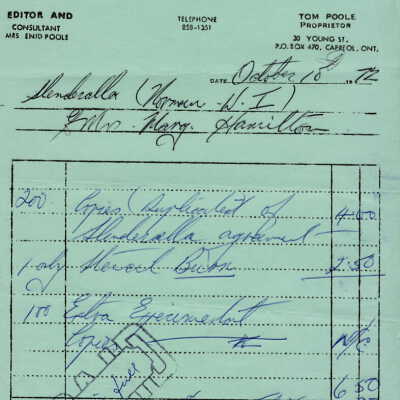 EDITOR AND
CONSULTANT
MRS ENID POOLE
TELEPHONE
858-1251
TOM POOLE
PROPRIETOR
30 YOUNG ST.
P.O. BOX 470, CAPREOL, ONT.
DATE October 18 19 72
Slenderalla (Norman W. I)
% Mrs Marg. Hamilton
200 Copies Duplicated of 4.00
Slenderalla agreement
1 only Stencil 2.50
100 Extra
Copies N/C
6.50